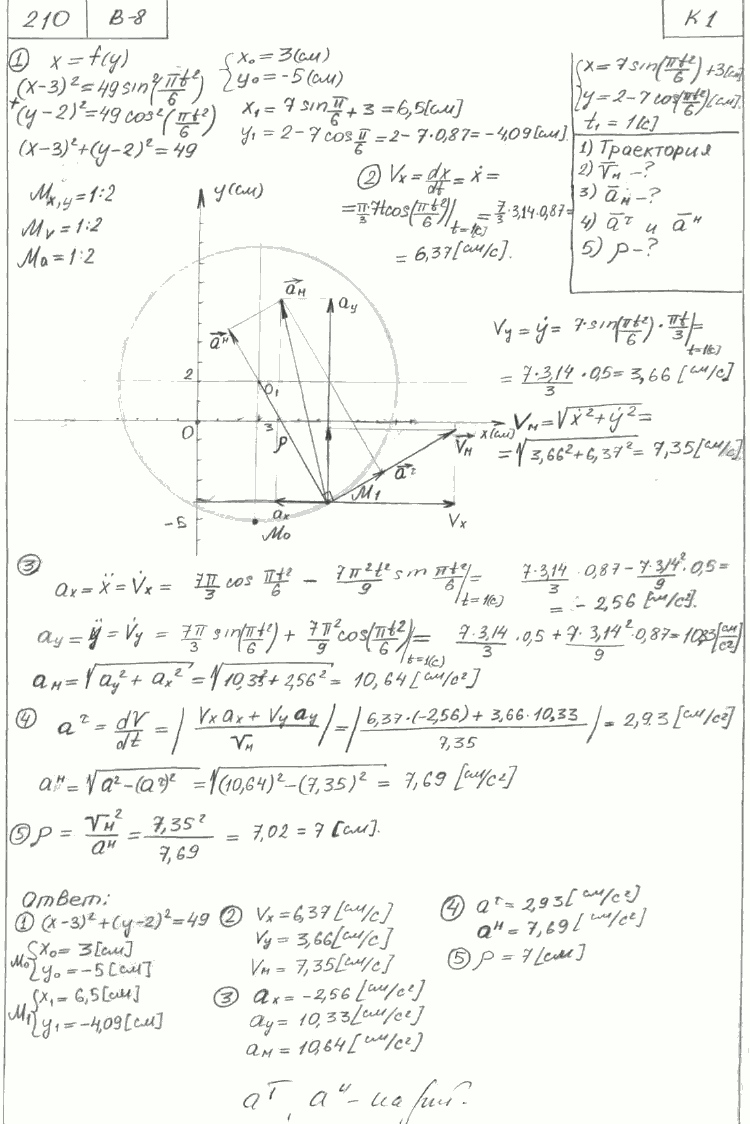 210 В-8 К1
① x = f(y)
(x-3)²=49 sin²(πt²/6)
+
(y-2)²=49 cos²(πt²/6)
(x-3)²+(y-2)²=49
{x₀=3(см)
y₀=-5(см)
x₁ = 7 sin π/6 + 3 = 6,5[см]
y₁ = 2-7 cos π/6 = 2-7·0,87=-4,09[см].
{x=7 sin(πt²/6)+3[см]
y=2-7 cos(πt²/6)[см].
t₁ = 1[с]
1) Траектория
2) V̄м -?
3) āм -?
4) āᵗ и āᴴ
5) ρ -?
Mx,y = 1:2
Mv = 1:2
Ma = 1:2
② Vx = dx/dt = ẋ =
= π/3·7t cos(πt²/6)|t=1(c) = 7/3·3,14·0,87=
= 6,37[см/с].
y(см)
āм
ay
āᴴ
2
O₁
O
3
ρ
x(см)
V̄м
āᵗ
M₁
ax
Vx
-5
M₀
Vy = ẏ = 7·sin(πt²/6)·πt/3|t=1(c) =
= 7·3,14/3 ·0,5 = 3,66 [см/с]
Vм = √ẋ²+ẏ² =
= √3,66²+6,37² = 7,35[см/с]
③ ax = ẍ = V̇x = 7π/3 cos πt²/6 - 7π²t²/9 sin πt²/6|t=1(c) = 7·3,14/3 ·0,87 - 7·3,14²/9·0,5=
= -2,56 [см/с²].
ay = ÿ = V̇y = 7π/3 sin(πt²/6) + 7π²/9 cos(πt²/6)|t=1(c) = 7·3,14/3 ·0,5 + 7·3,14²/9·0,87=10,33[см/с²]
aм = √ay² + ax² = √10,33²+2,56² = 10,64[см/с²]
④ aᵗ = dV/dt = |Vx ax + Vy ay/Vм| = |6,37·(-2,56)+3,66·10,33/7,35| = 2,93 [см/с²]
aᴴ = √a²-(aᵗ)² = √(10,64)²-(7,35)² = 7,69 [см/с²]
⑤ ρ = Vм²/aᴴ = 7,35²/7,69 = 7,02 = 7 [см].
Ответ:
① (x-3)²+(y-2)²=49
M₀ {x₀= 3[см]
y₀=-5[см]
M₁ {x₁= 6,5[см]
y₁=-4,09[см]
② Vx=6,37[см/с]
Vy = 3,66[см/с]
Vм = 7,35[см/с]
③ ax = -2,56 [см/с²]
ay = 10,33[см/с²]
aм = 10,64[см/с²]
④ aᵗ = 2,93[см/с²]
aᴴ = 7,69[см/с²]
⑤ ρ = 7[см]
aᵗ, aᴴ -